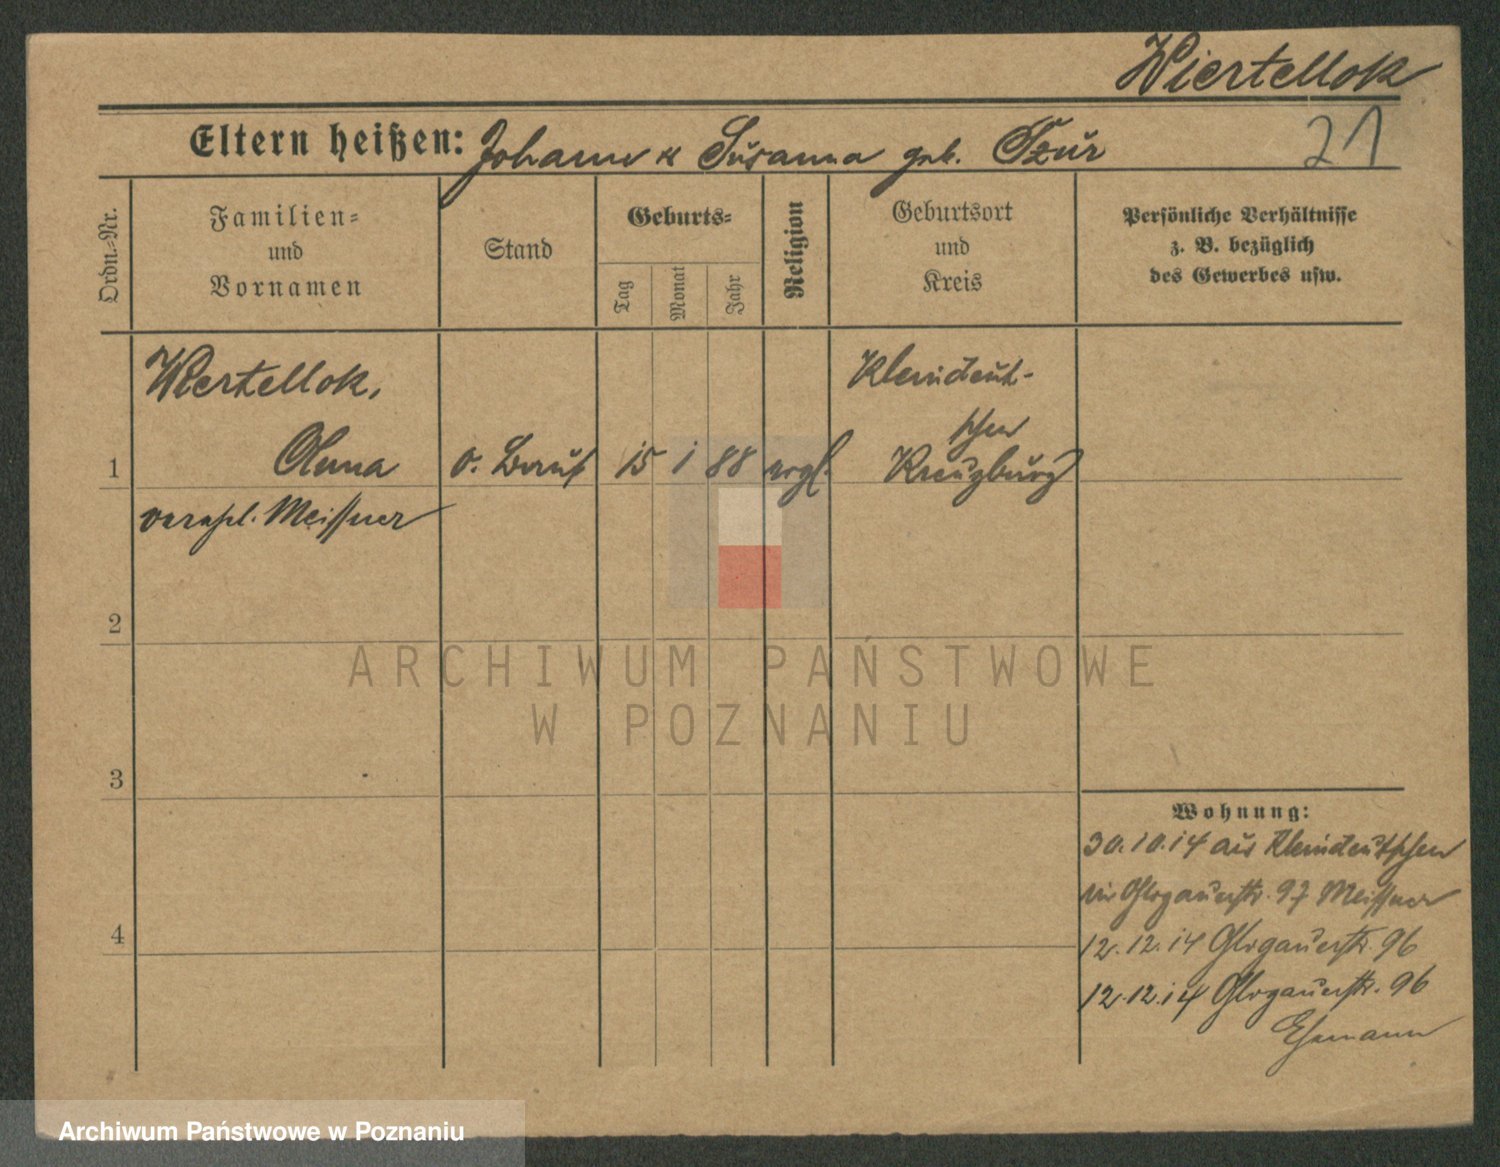 Wiertellok
Eltern heißen: Johann & Susanna geb. Tzur
21
Ordn.-Nr.
Familien-
und
Vornamen
Stand
Geburts-
Tag
Monat
Jahr
Religion
Geburtsort
und
Kreis
Persönliche Verhältnisse
z. B. bezüglich
des Gewerbes usw.
Wiertellok,
Anna
verehl. Meissner
1
o. Beruf
15
1
88
evgl.
Kleindeut-
schen
Kreuzburg
2
3
4
Wohnung:
30.10.14 aus Kleindeutschen
Glogauerstr. 97 Meissner
12.12.14 Glogauerstr. 96
12.12.14 Glogauerstr. 96
Ehemann
ARCHIWUM PAŃSTWOWE
W POZNANIU
Archiwum Państwowe w Poznaniu